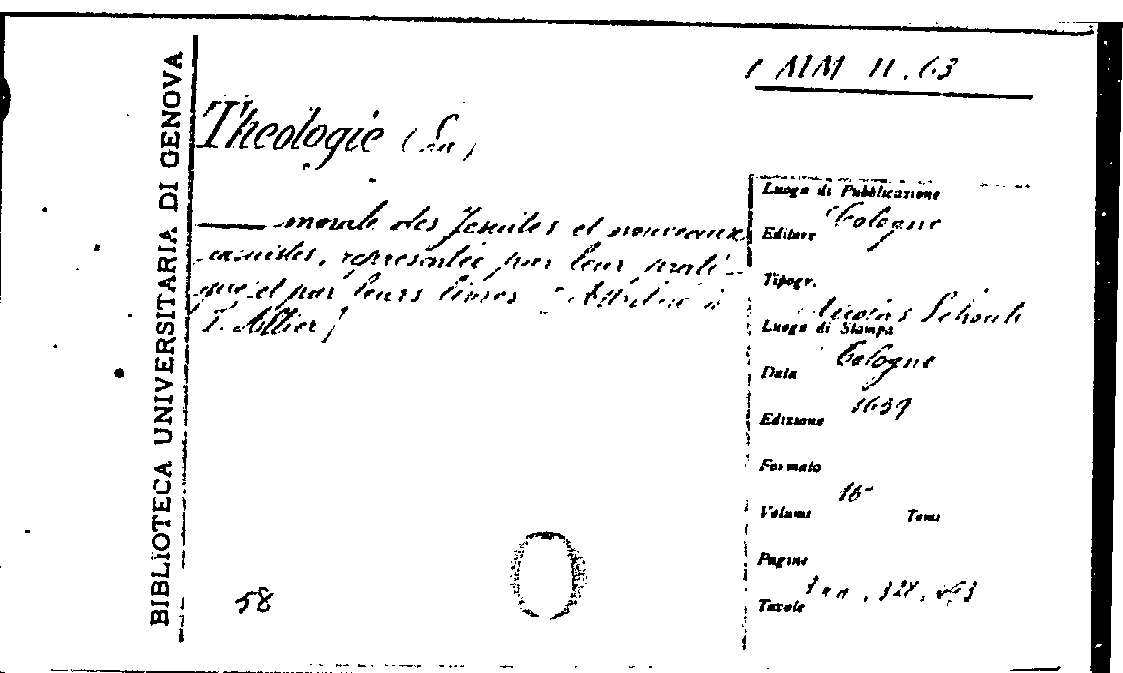 BIBLIOTECA UNIVERSITARIA DI GENOVA
Theologie (La)
morale des Jesuites et nouveaux
casuistes, representée par leur prati-
que et par leurs livres
Luogo di Pubblicazione
Cologne
Editore
Tipogr.
Nicolas Schoute
Luogo di Stampa
Cologne
Data
1659
Edizione
Formato
16°
Volume Tomi
Pagine
Tavole
58